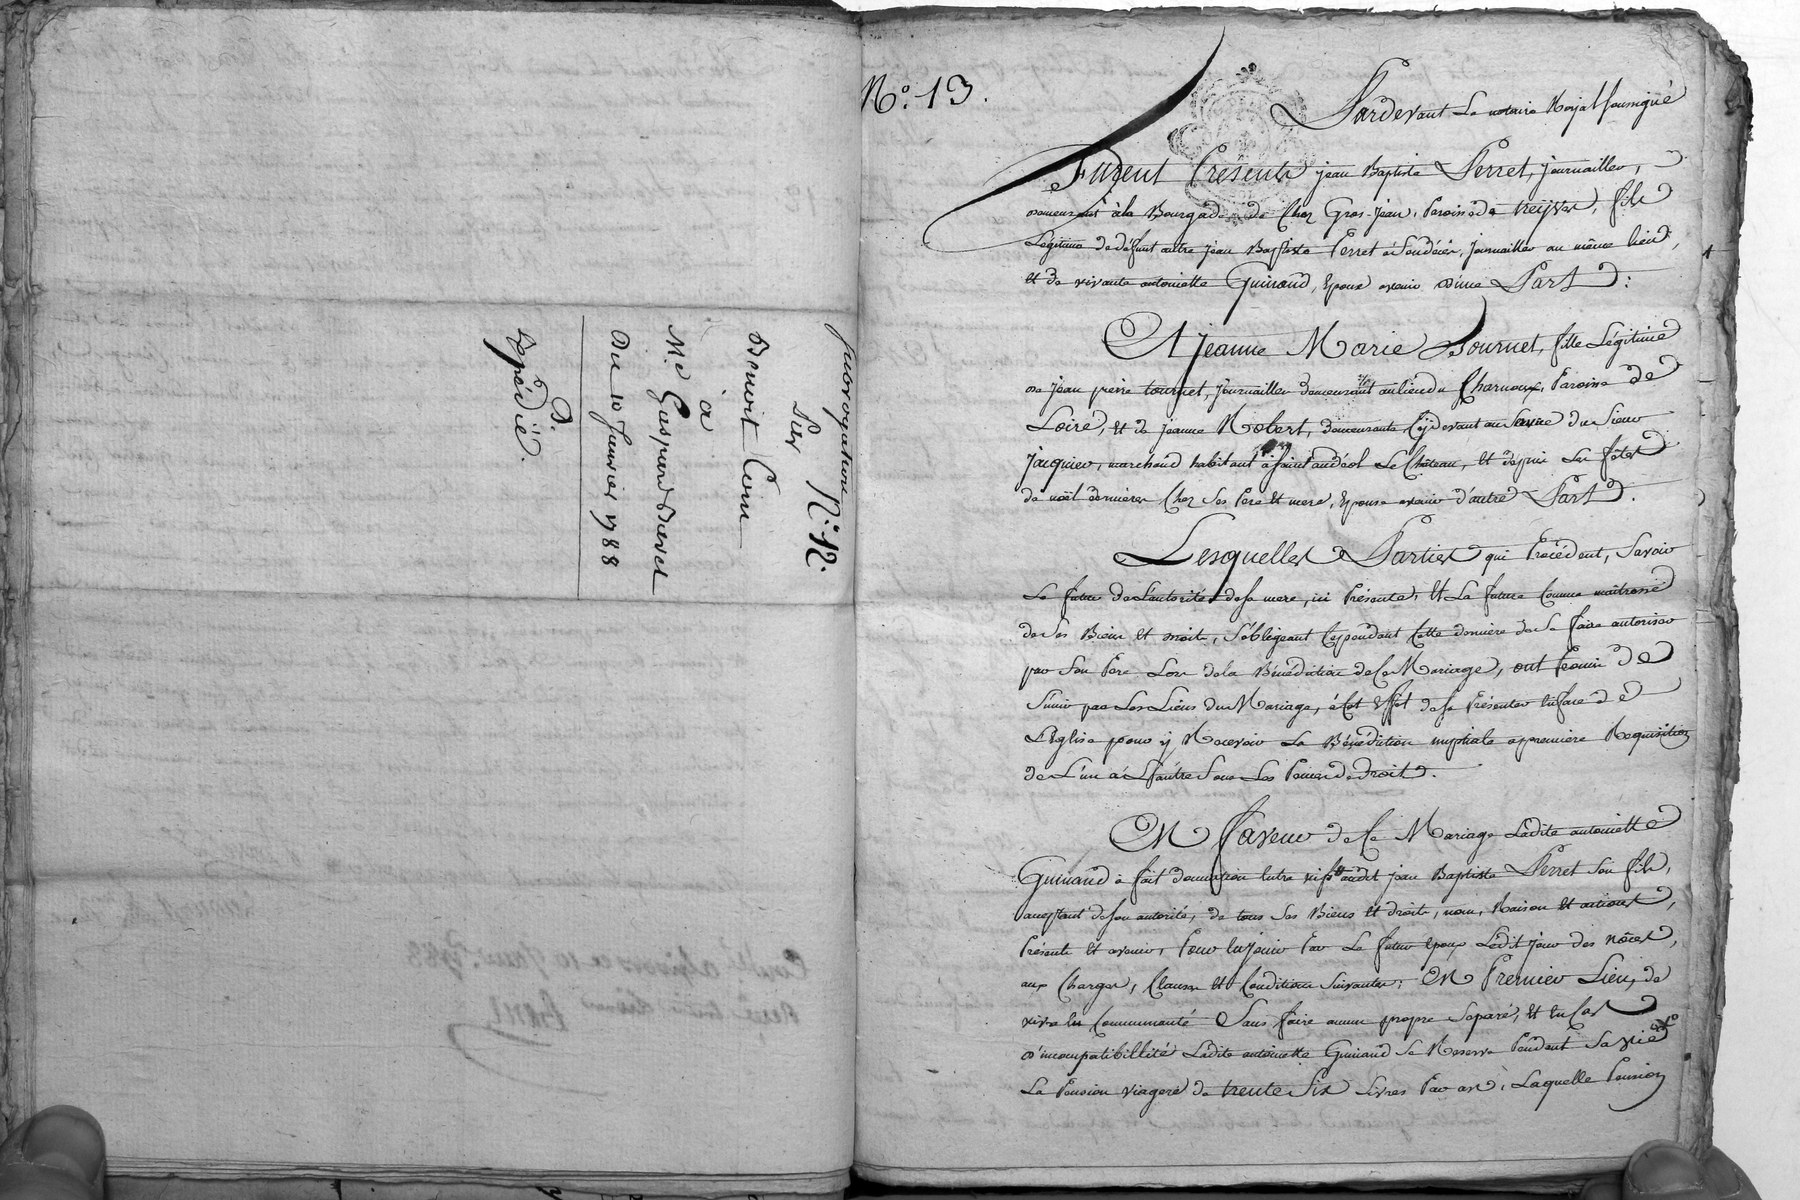 N.° 12.
prorogation
Sur
Benoit Coin
à
M.e Gaspard
Du 10 Janvier 1788
D.
Expédié.
N.° 13.
Pardevant Le notaire Royal soussigné
Furent Présents jean Baptiste Perret, journailler,
demeurant à la Bourgade de Chez Gros-jean, Paroisse de treÿves, fils
Légitime de défunt autre jean Baptiste Perret à son décès, journailler au même lieu,
et de vivante antoinette Guinand, Epoux avenir d'une Part :
Et jeanne Marie tournet, fille Légitime
de jean pierre tournet, journailler demeurant au lieu de Charnoux, Paroisse de
Loire, et de jeanne Robert, demeurante Cÿdevant au service du Sieur
jacquier, marchand habitant à saint andéol Le Château, et depuis Les fêtes
de noël dernieres Chez Ses Pere et mere, Epouse avenir d'autre Part.
Lesquelles Parties qui Procèdent, Savoir
Le futur de L'autorité de sa mere, ici Présente, et La future Comme maîtresse
de Ses Biens et droits, S'obligeant Cependant Cette derniere de Se faire autoriser
par Son Pere Lors de la Bénédiction de Ce Mariage, ont Promis de
S'unir par Les Liens du Mariage, à Cet Effet de se Présenter En face de
L'Eglise pour ÿ Recevoir La Bénédiction nuptiale a premiere Requisition
de L'un à L'autre Sous Les Peines de droit.
EN faveur de Ce Mariage Ladite antoinette
Guinand à fait donnation Entre vifs audit jean Baptiste Perret Son fils,
acceptant de son autorité, de tous Ses Biens et droits, noms, Raisons et actions,
Présents et avenir, Pour En jouir Par Le futur Epoux Ledit jour des nôces,
aux Charges, Clauses et Conditions Suivantes : EN Premier Lieu, de
vivre En Communauté Sans faire aucun propre Separé, et En Cas
d'incompatibillité Ladite antoinette Guinand Se Reserve Pendant Sa vie
La Pension viagere de trente Six Livres Par an, Laquelle Pension